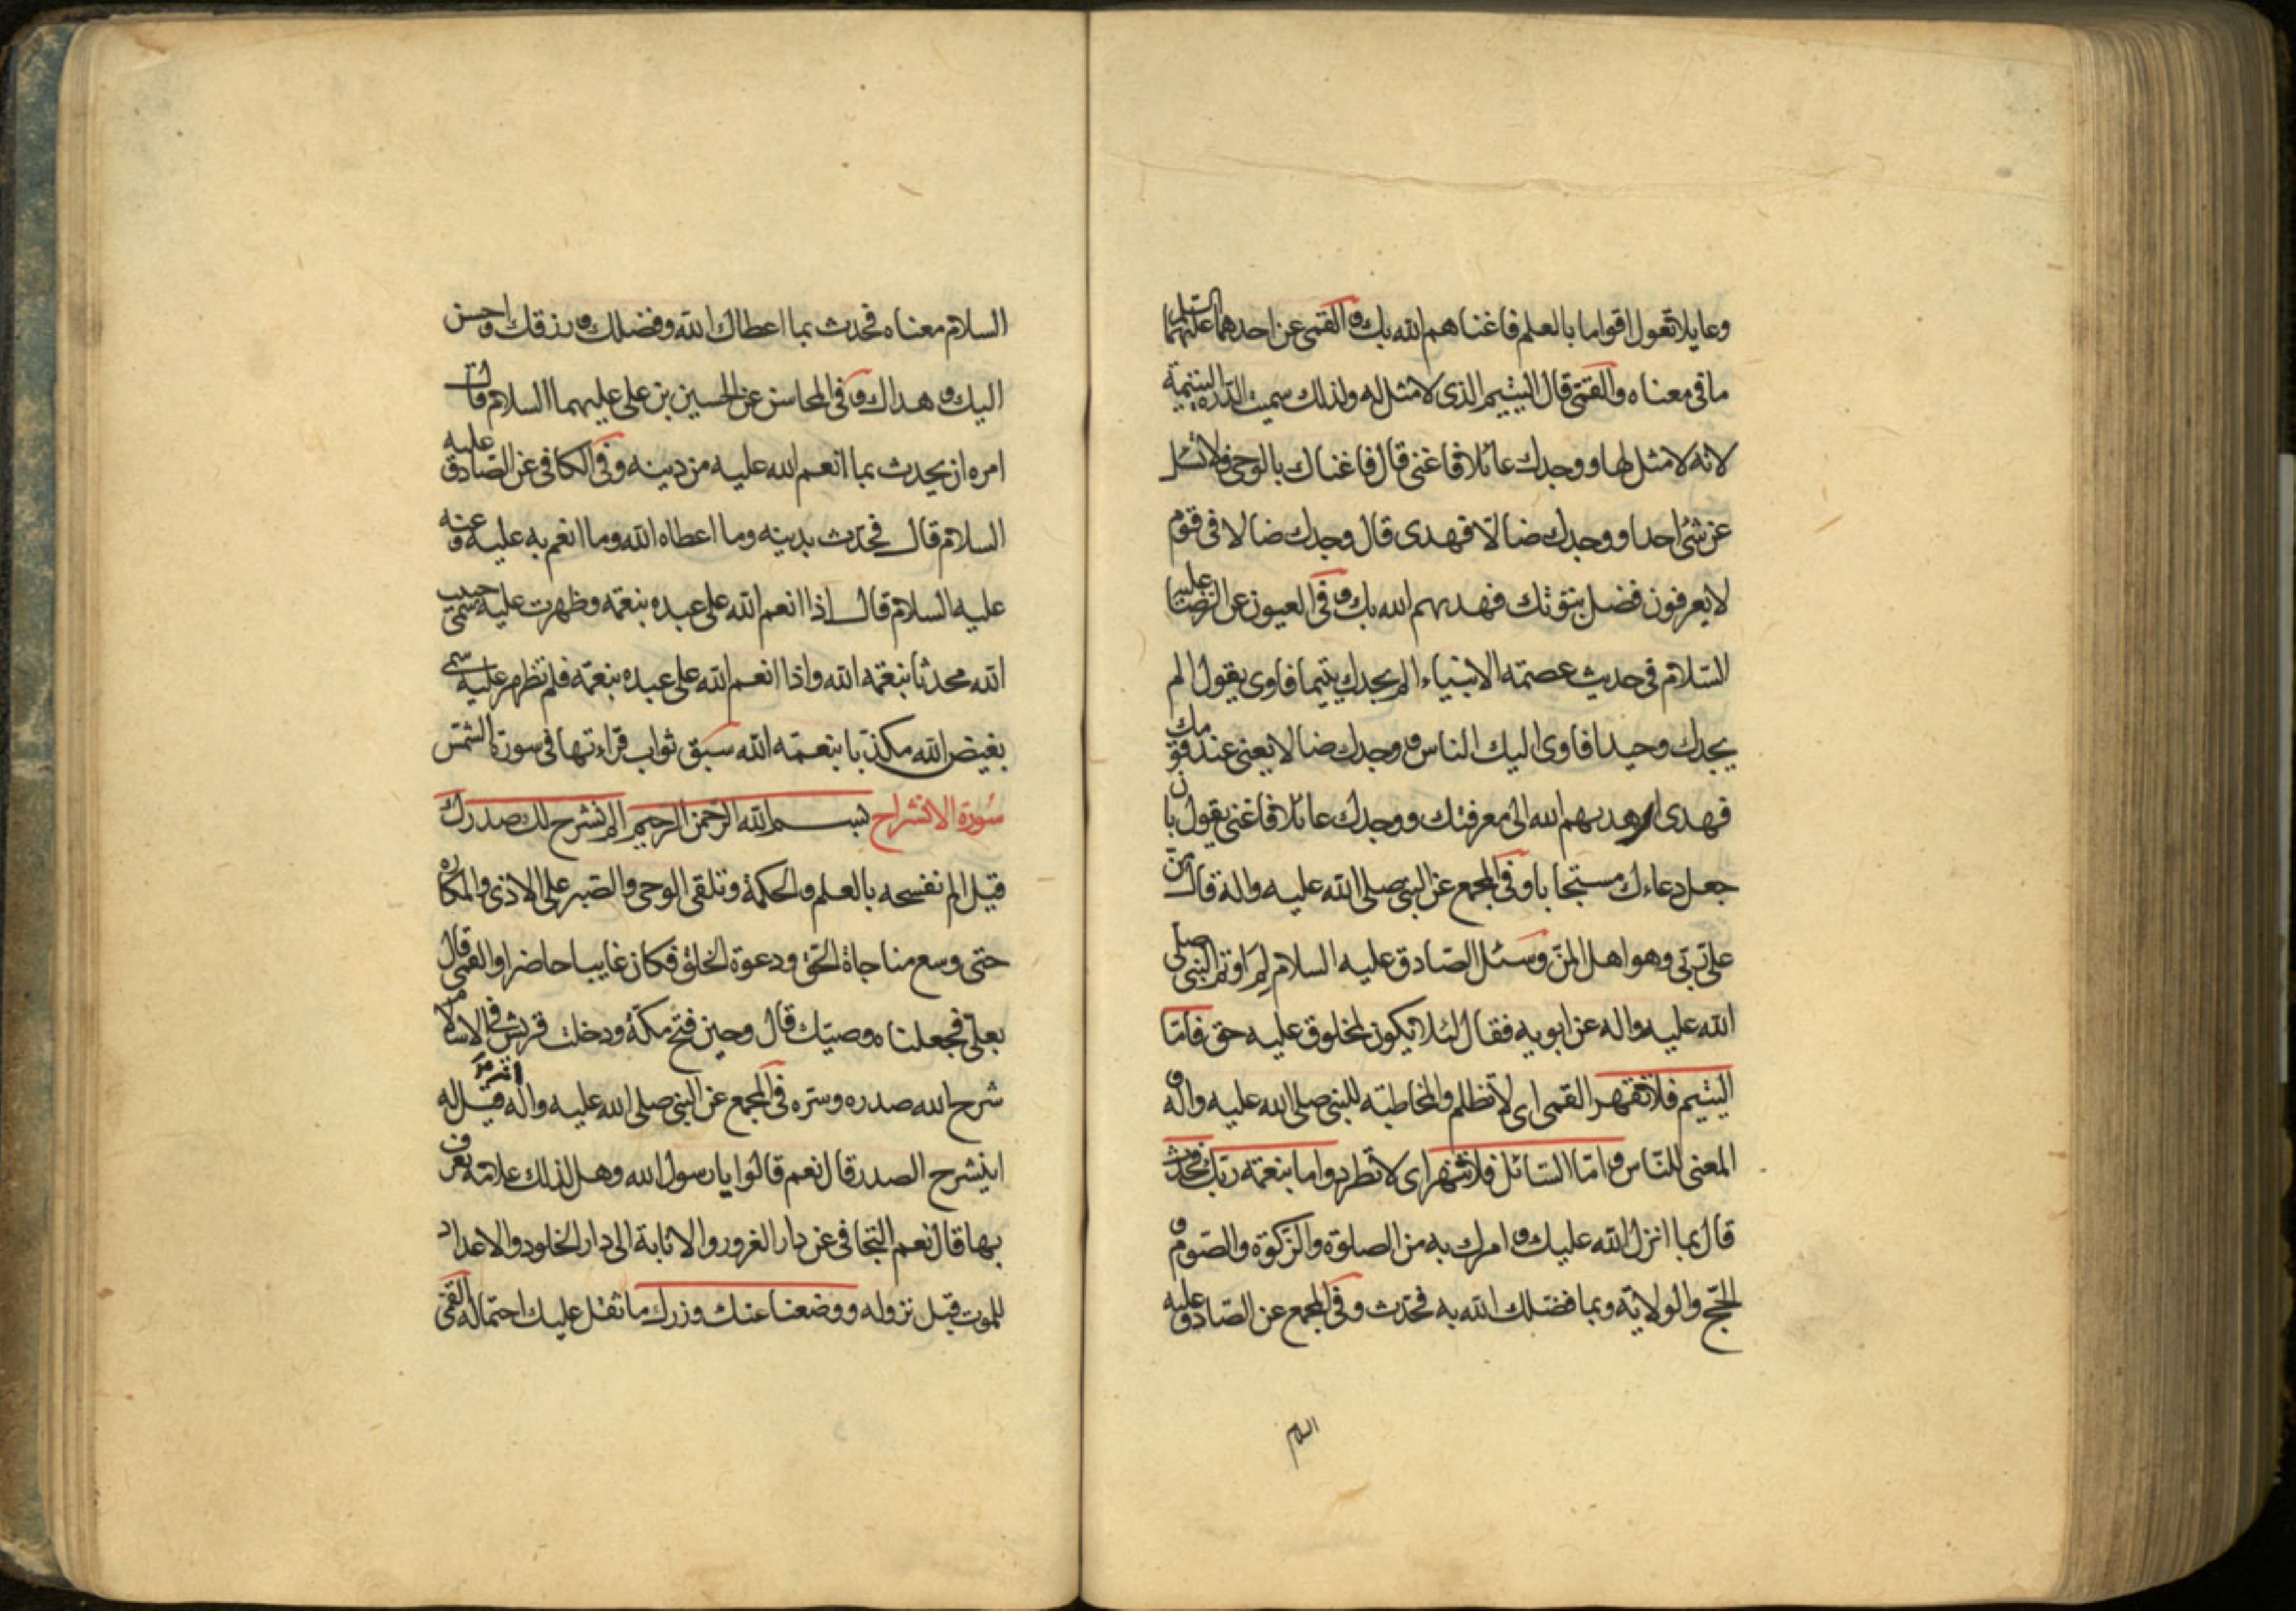 وعايلا تعول اقواما بالعلم فاغناهم الله بك و القمى عن احدهما عليهما السلام
ما فى معناه والقمّى قال اليتيم الذى لا مثل له ولذلك سميت الدّرة اليتيمة
لانه لا مثل لها ووجدك عائلا فاغنى قال فاغناك بالوحى فلا تسئل
عن شئ احدا ووجدك ضالّا فهدى قال وجدك ضالا فى قوم
لا يعرفون فضل نبوّتك فهديهم الله بك و فى العيون عن الرّضا عليه
السّلام فى حديث عصمته الانبياء الم يجدك يتيما فاوى يقول الم
يجدك وحيدا فاوى اليك الناس و وجدك ضالا يعنى عند قومك
فهدى اى هديهم الله الى معرفتك ووجدك عائلا فاغنى يقول بان
جعل دعاءك مستجابا وفى المجمع عن النبى صلى الله عليه واله قال منّ
علىّ ربّى وهو اهل المنّ وسئل الصّادق عليه السلام لم اوتم النبى صلى
الله عليه واله عن ابويه فقال لئلا يكون لمخلوق عليه حق فامّا
اليتيم فلا تقهر القمى اى لا تظلم والمخاطبته للنبى صلى الله عليه واله و
المعنى للنّاس و امّا السّائل فلا تنهر اى لا تطرد واما بنعمة ربّك فحدث
قال بما انزل الله عليك و امرك به من الصلوة والزّكوة والصّوم و
الحّج والولاية وبما فضلك الله به فحدّث وفى المجمع عن الصّادق عليه
السلام
السلام معناه فحدث بما اعطاك الله وفضلك و رزقك واحسن
اليك و هداك و فى المحاسن عن الحسين بن على عليهما السلام قال
امره ان يحدث بما انعم الله عليه من دينه وفى الكافى عن الصّادق عليه
السلام قال فحدّث بدينه وما اعطاه الله وما انعم به عليه وعنه
عليه السلام قال اذا انعم الله على عبده بنعمة وظهرت عليه سمّى حبيب
الله محدثا بنعمة الله واذا انعم الله على عبده بنعمة فلم تظهر عليه سمى
بغيض الله مكذبا بنعمته الله سبق ثواب قراءتها فى سورة الشمس
سورة الانشراح بسم الله الرّحمن الرحيم الم نشرح لك صدرك
قيل الم نفسحه بالعلم والحكمة وتلقى الوحى والصّبر على الاذى والمكاره
حتى وسع مناجاة الحق ودعوة الخلق فكان غايبا حاضرا والقمى قال
بعلىّ فجعلناه وصيّك قال وحين فتح مكّة ودخلت قريش فى الاسلام
شرح الله صدره وسّره فى المجمع عن النبى صلى الله عليه واله قيل له
اينشرح الصدر قال نعم قالوا يا رسول الله وهل لذلك علامة يعرف
بها قال نعم التجافى عن دار الغرور والانابة الى دار الخلود والاعداد
للموت قبل نزوله ووضعنا عنك وزرك ما ثقل عليك احتماله القمّى